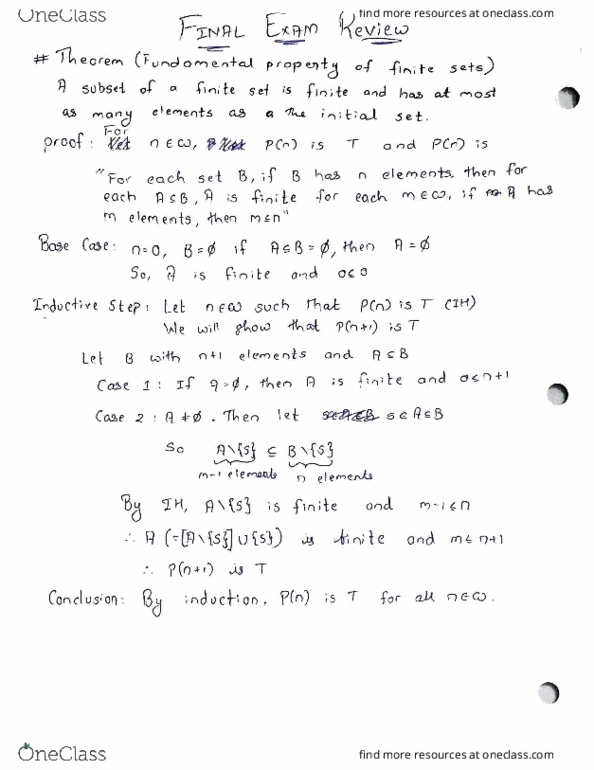 OneClass
find more resources at oneclass.com
FINAL EXAM Review
# Theorem (Fundamental property of finite sets)
A subset of a finite set is finite and has at most
as many elements as a the initial set.
proof: For n∈ω, P(n) is T and P(n) is
"For each set B, if B has n elements, then for
each A⊆B, A is finite for each m∈ω, if A has
m elements, then m≤n"
Base Case: n=0, B=∅ if A⊆B=∅, then A=∅
So, A is finite and 0≤0
Inductive Step: Let n∈ω such that P(n) is T (IH)
We will show that P(n+1) is T
Let B with n+1 elements and A⊆B
Case 1: If A=∅, then A is finite and 0≤n+1
Case 2: A≠∅. Then let s∈A⊆B
So A\{s} ⊆ B\{s}
m-1 elements n elements
By IH, A\{s} is finite and m-1≤n
∴ A (=[A\{s}]∪{s}) is finite and m≤n+1
∴ P(n+1) is T
Conclusion: By induction, P(n) is T for all n∈ω.
OneClass
find more resources at oneclass.com